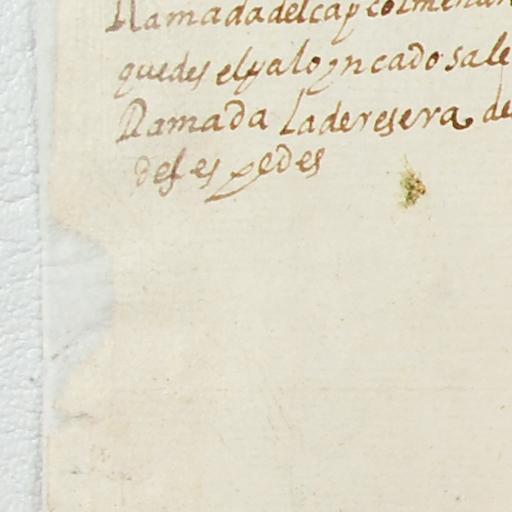 llamada del cap colmenar
quedes el palo yncado sale
llamada la deresera de
des es pedes